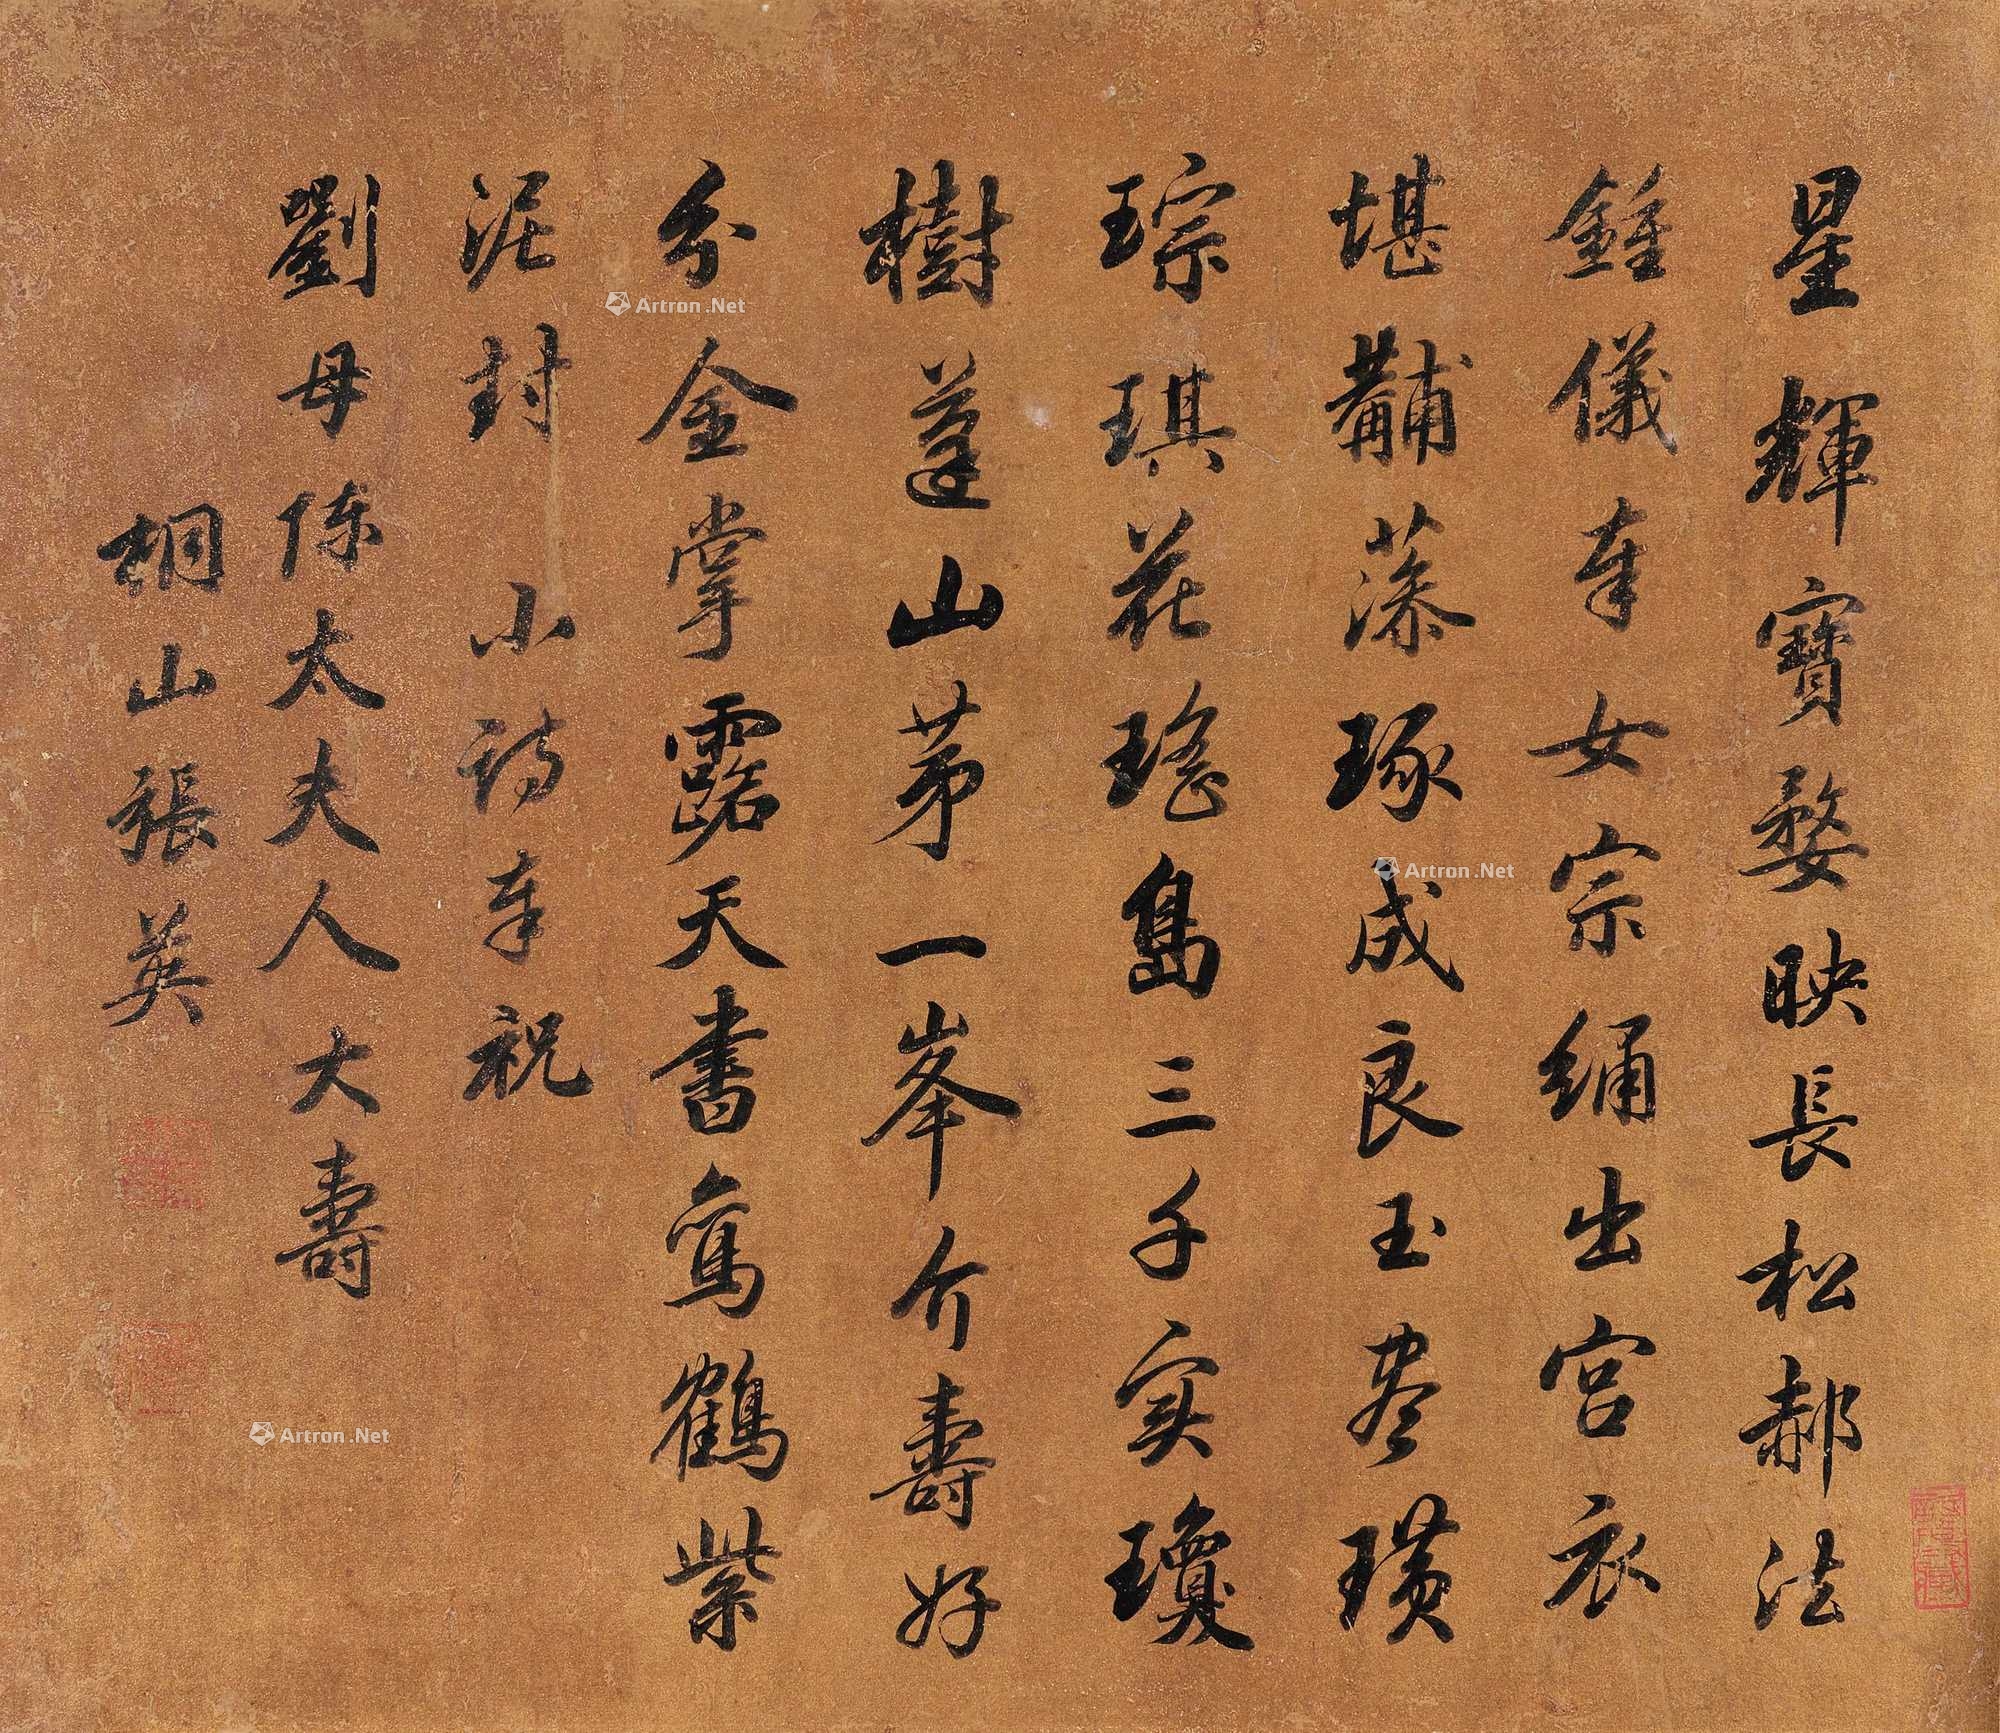 星輝寶婺映長松郝法
鍾儀奉女宗綉出宮衣
堪黼藻琢成良玉盡璜
琮琪花瑤島三千实瓊
樹蓬山第一峯介壽好
分金掌露天書鸞鶴紫
泥封 小詩奉祝
劉母陳太夫人大壽
桐山張英
Artron.Net
Artron.Net
Artron.Net